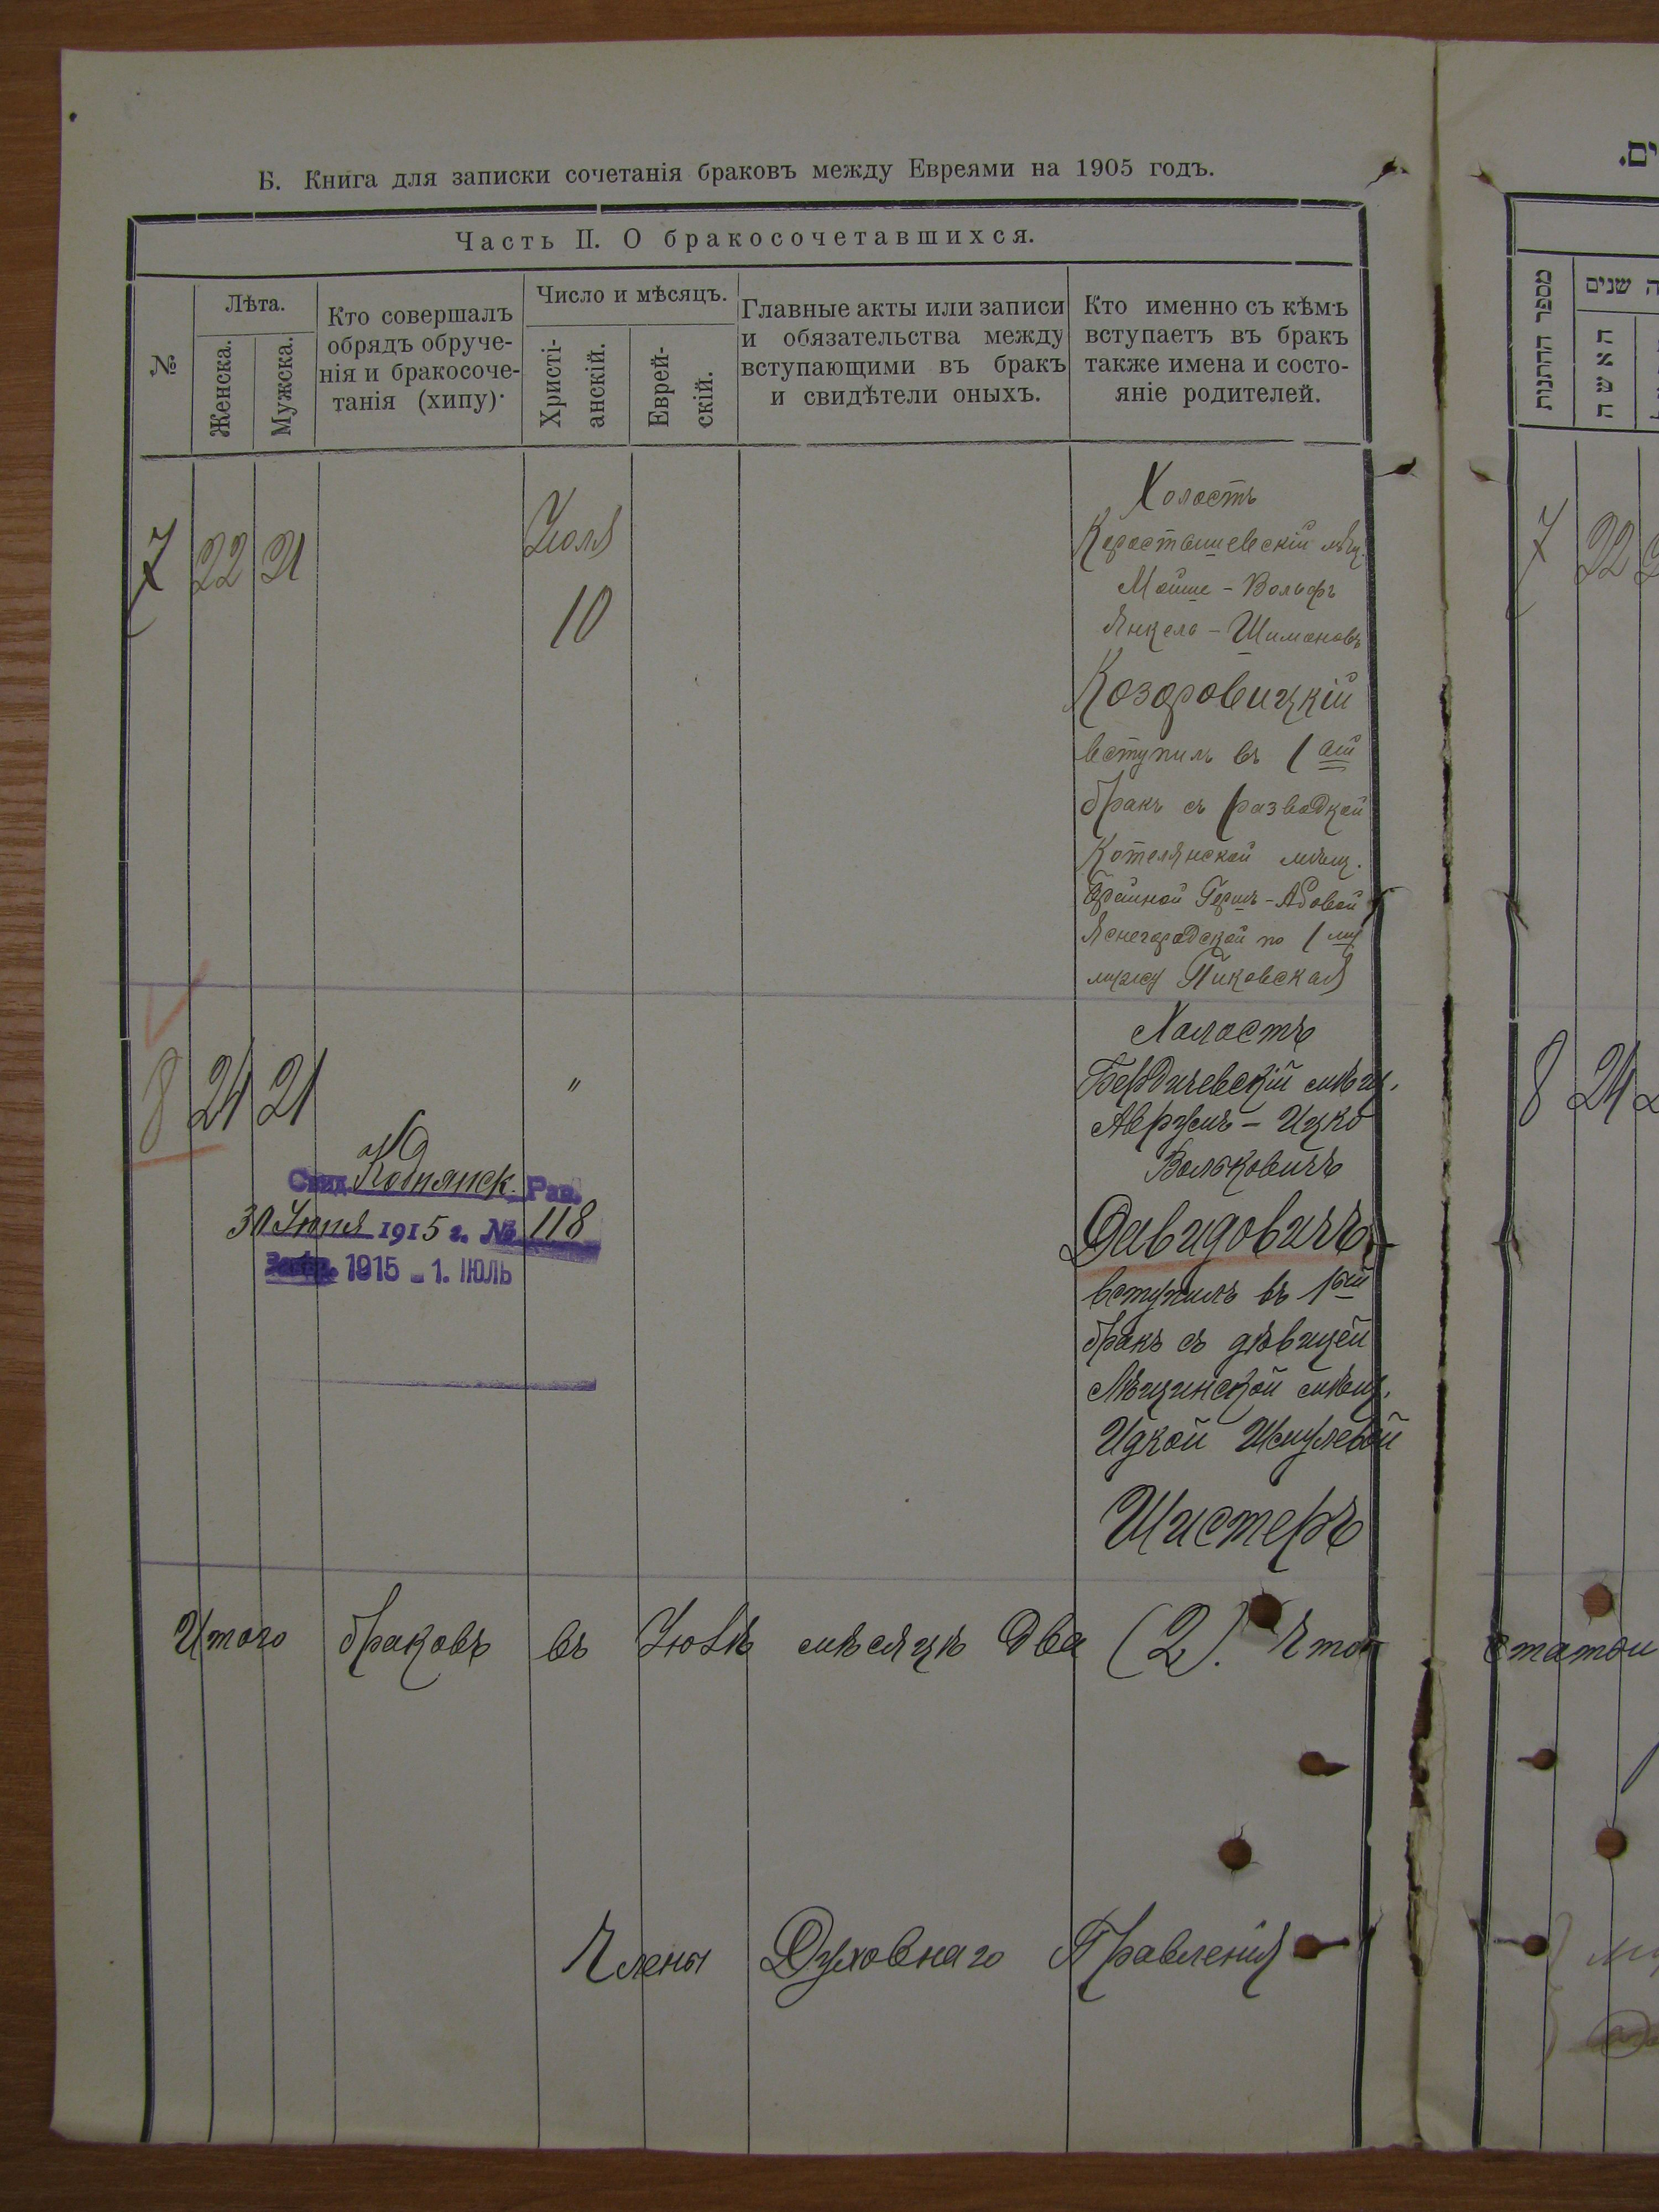 Б. Книга для записки сочетанія браковъ между Евреями на 1905 годъ.
Часть II. О бракосочетавшихся.
№
Лѣта.
Женска.
Мужска.
Кто совершалъ
обрядъ обруче-
нія и бракосоче-
танія (хипу)
Число и мѣсяцъ.
Христі-
анскій.
Еврей-
скій.
Главные акты или записи
и обязательства между
вступающими въ бракъ
и свидѣтели оныхъ.
Кто именно съ кѣмъ
вступаетъ въ бракъ
также имена и состо-
яніе родителей.
7
22
21
Іюля
10
Холостъ
Коростышевскій мѣщ.
Мойше - Вольфъ
Янкель - Шимоновъ
Козоровицкій
вступилъ въ 1 ый
бракъ съ разводкой
Котелянской мѣщ.
Герш - Абовой
Ясногородской по 1 му
мужу Пиковская
8
24
21
"
Холостъ
Бердичевскій мѣщ.
Аврумъ - Ицко
Вольковичъ
Давидовичъ
вступилъ въ 1 ый
бракъ съ дѣвицей
Лѣщинской мѣщ.
Идкой Шмулевой
Шистеръ
Свид. Коднянск. Рав.
30 Іюня 1915 г. № 118
1915 - 1. ІЮЛЬ
Итого браковъ въ Іюлѣ мѣсяцѣ два (2). Что
Члены Духовнаго Правленія
ים.
מספר החתנות
שנים
האשה
7
22
8
24
статьи